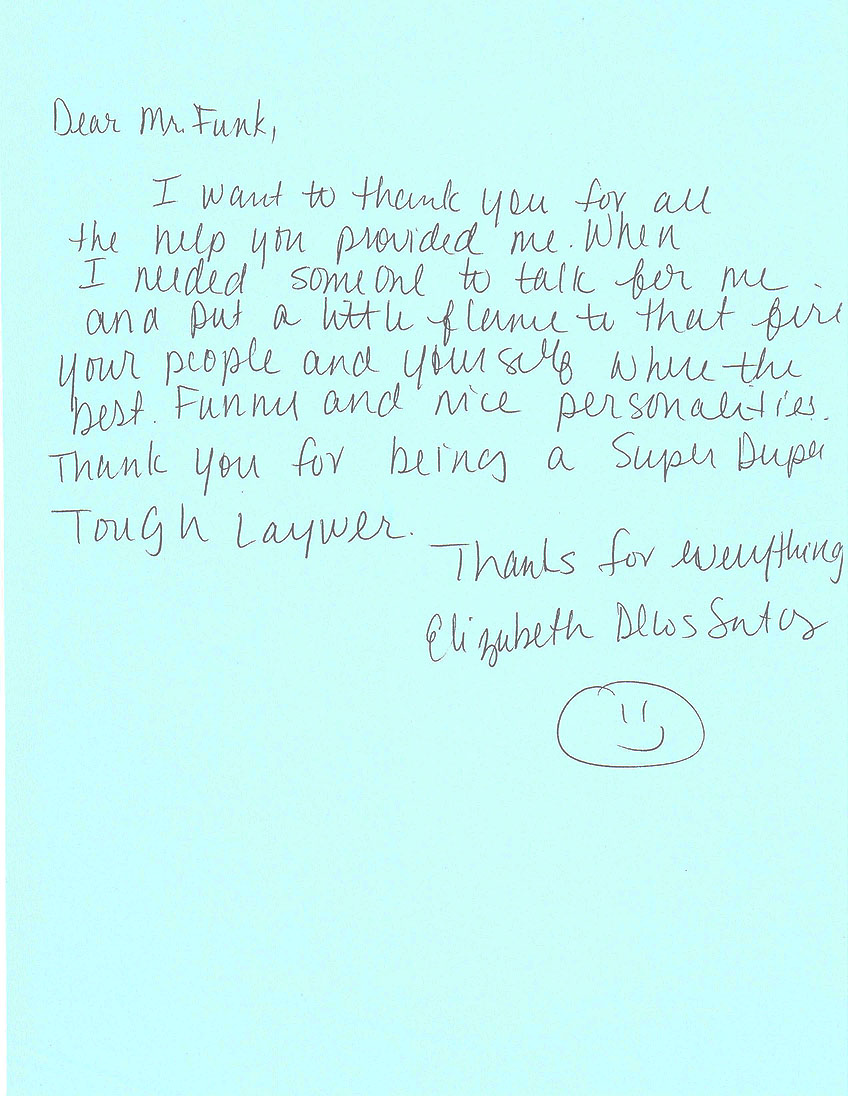 Dear Mr. Funk,
I want to thank you for all
the help you provided me. When
I needed someone to talk for me.
and put a little flame to that fire
your people and yourself where the
best. Funny and nice personalities.
Thank you for being a Super Duper
Tough Laywer.
Thanks for everything
Elizabeth